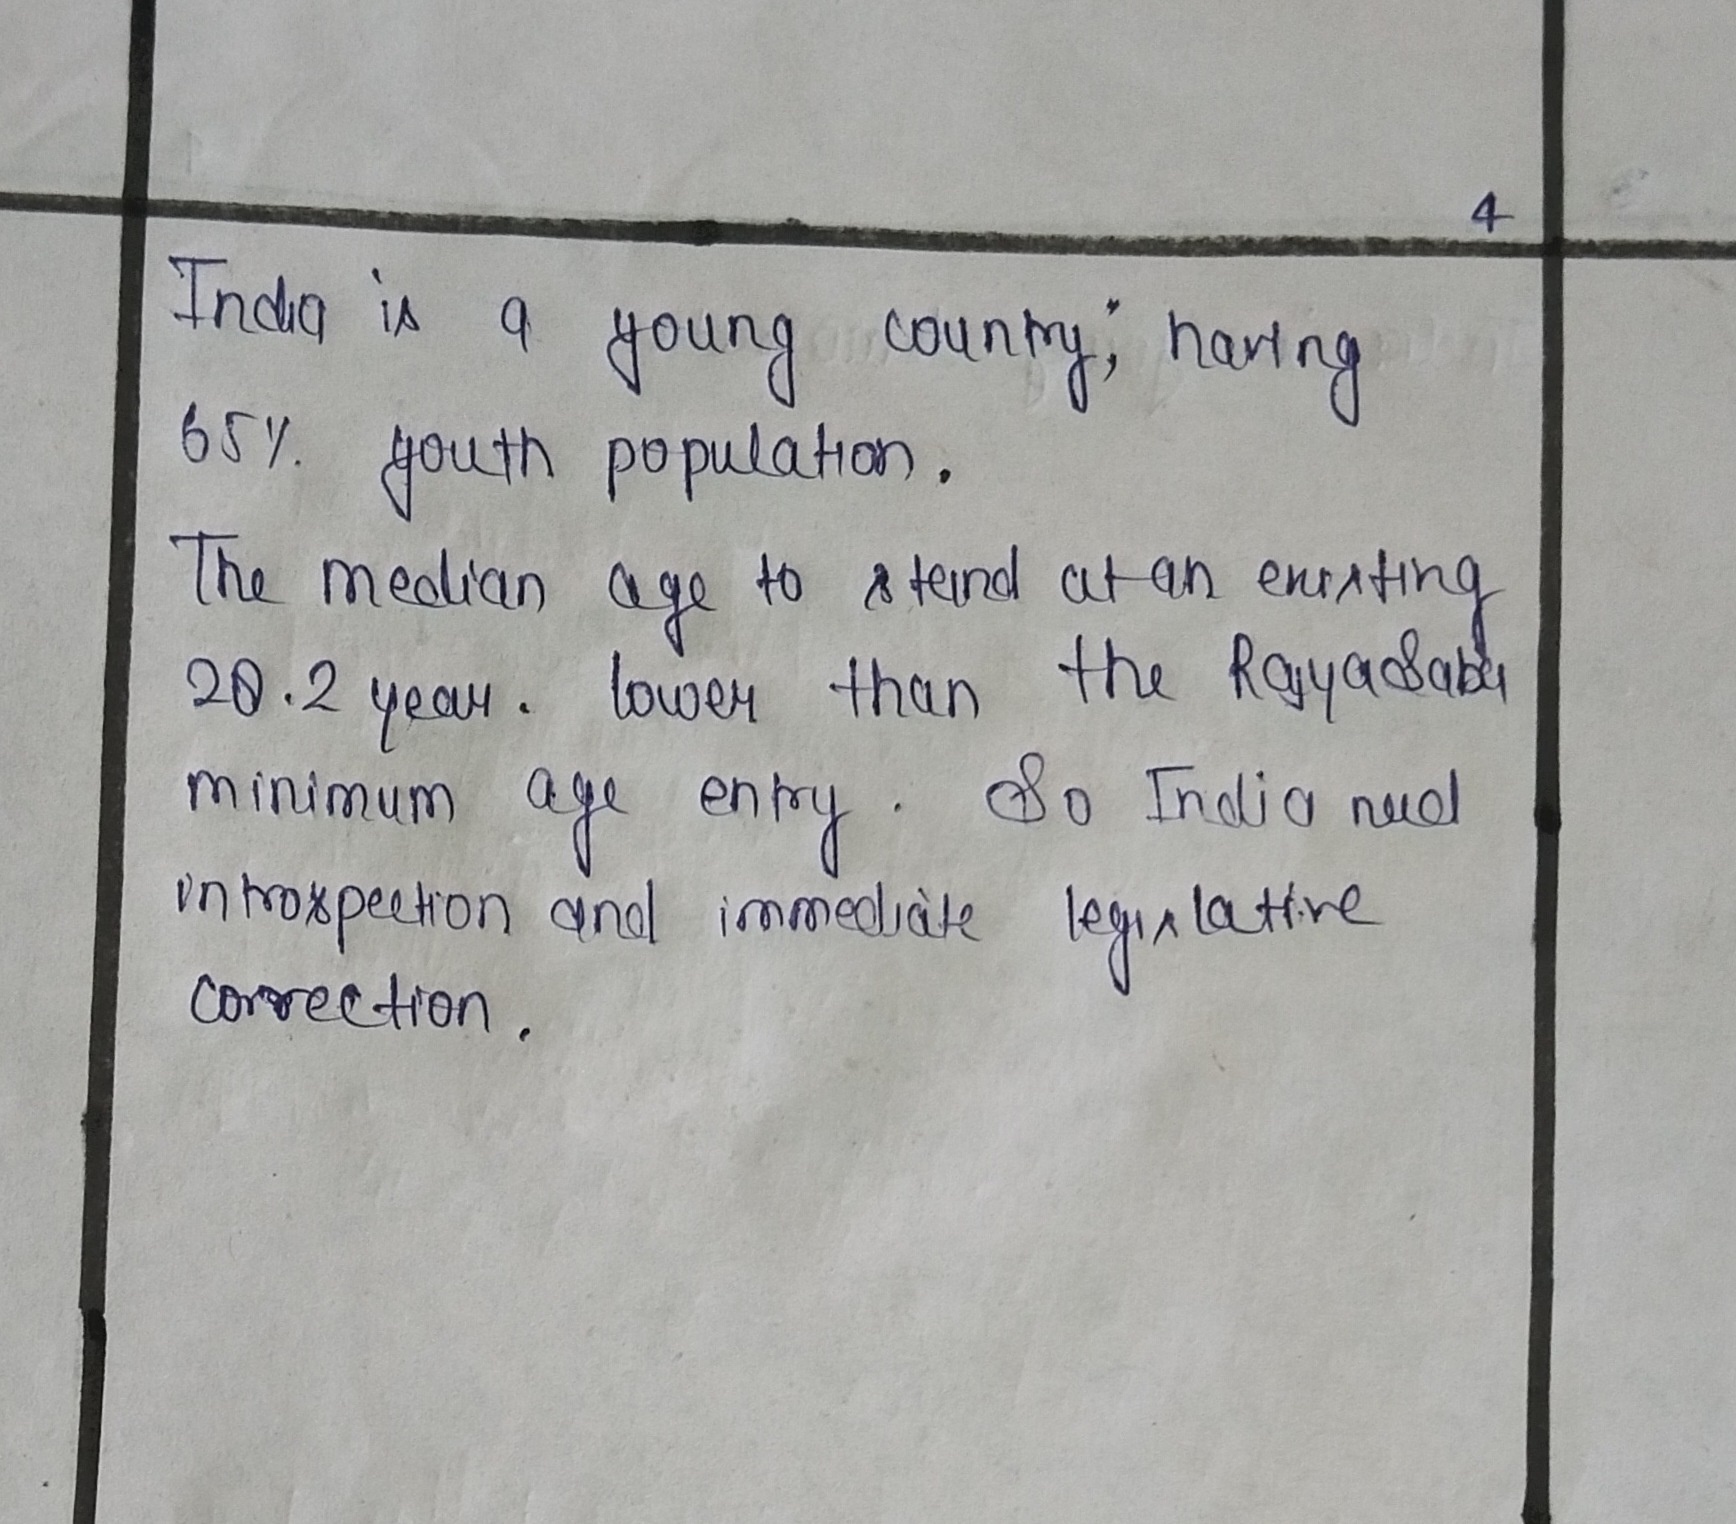 4
India is a young country; having
65% youth population.
The median age to stand at an existing
28.2 year. lower than the RajyaSaba
minimum age entry. So India need
introspection and immediate legislattive
correction.